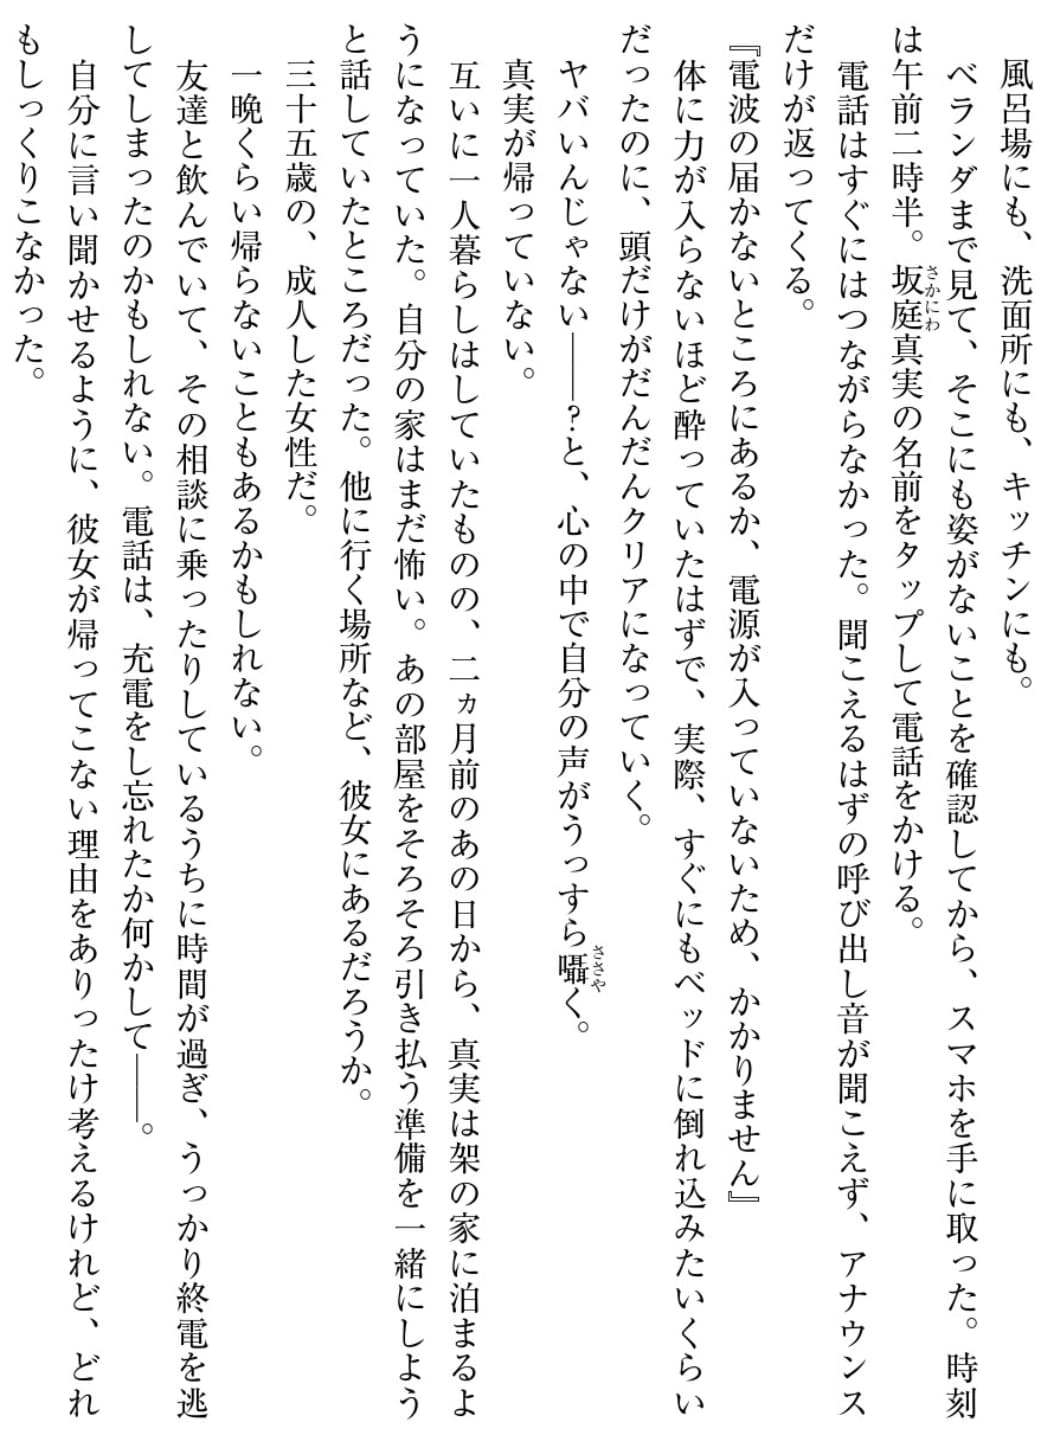 風呂場にも、洗面所にも、キッチンにも。
　ベランダまで見て、そこにも姿がないことを確認してから、スマホを手に取った。時刻
は午前二時半。坂庭真実の名前をタップして電話をかける。
さかにわ
　電話はすぐにはつながらなかった。聞こえるはずの呼び出し音が聞こえず、アナウンス
だけが返ってくる。
『電波の届かないところにあるか、電源が入っていないため、かかりません』
　体に力が入らないほど酔っていたはずで、実際、すぐにもベッドに倒れ込みたいくらい
だったのに、頭だけがだんだんクリアになっていく。
　ヤバいんじゃない――？と、心の中で自分の声がうっすら囁く。
ささや
　真実が帰っていない。
　互いに一人暮らしはしていたものの、二ヵ月前のあの日から、真実は架の家に泊まるよ
うになっていた。自分の家はまだ怖い。あの部屋をそろそろ引き払う準備を一緒にしよう
と話していたところだった。他に行く場所など、彼女にあるだろうか。
　三十五歳の、成人した女性だ。
　一晩くらい帰らないこともあるかもしれない。
　友達と飲んでいて、その相談に乗ったりしているうちに時間が過ぎ、うっかり終電を逃
してしまったのかもしれない。電話は、充電をし忘れたか何かして――。
　自分に言い聞かせるように、彼女が帰ってこない理由をありったけ考えるけれど、どれ
もしっくりこなかった。